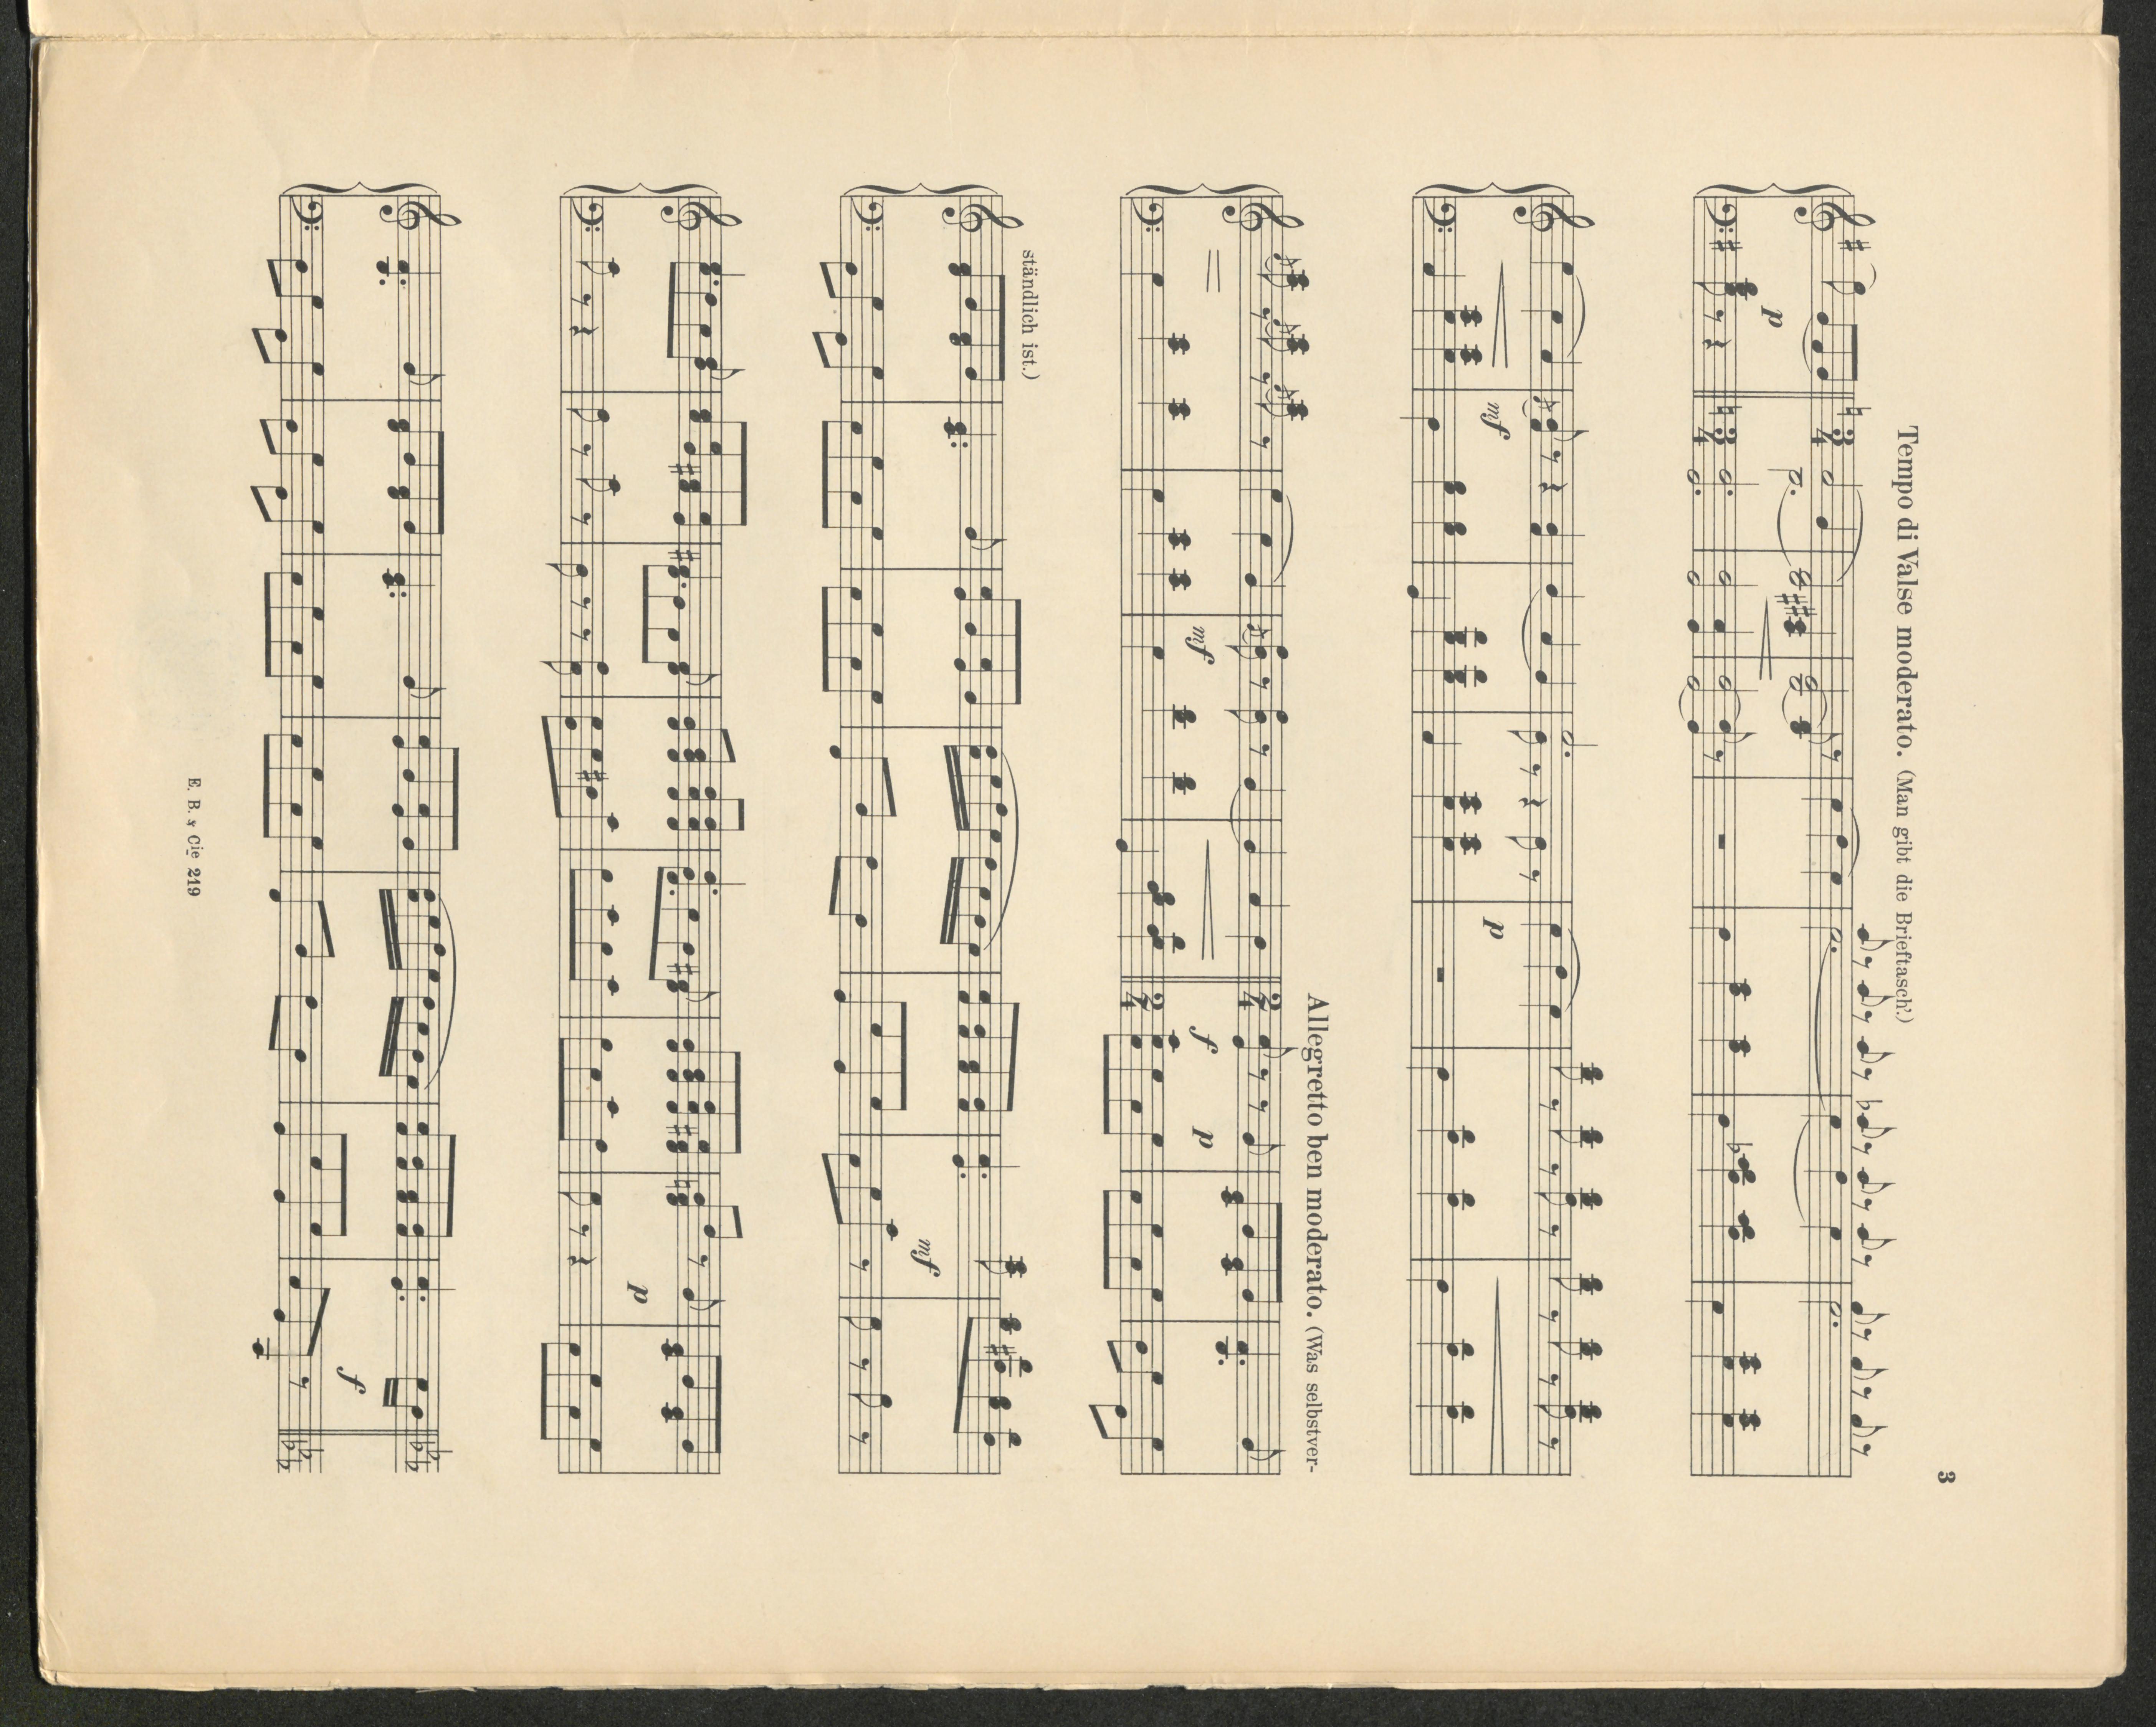 3
Tempo di Valse moderato. (Man gibt die Brieftasch'.)
p
mf
p
Allegretto ben moderato. (Was selbstver-
mf
f
p
ständlich ist.)
mf
p
f
E. B. & Cie 219